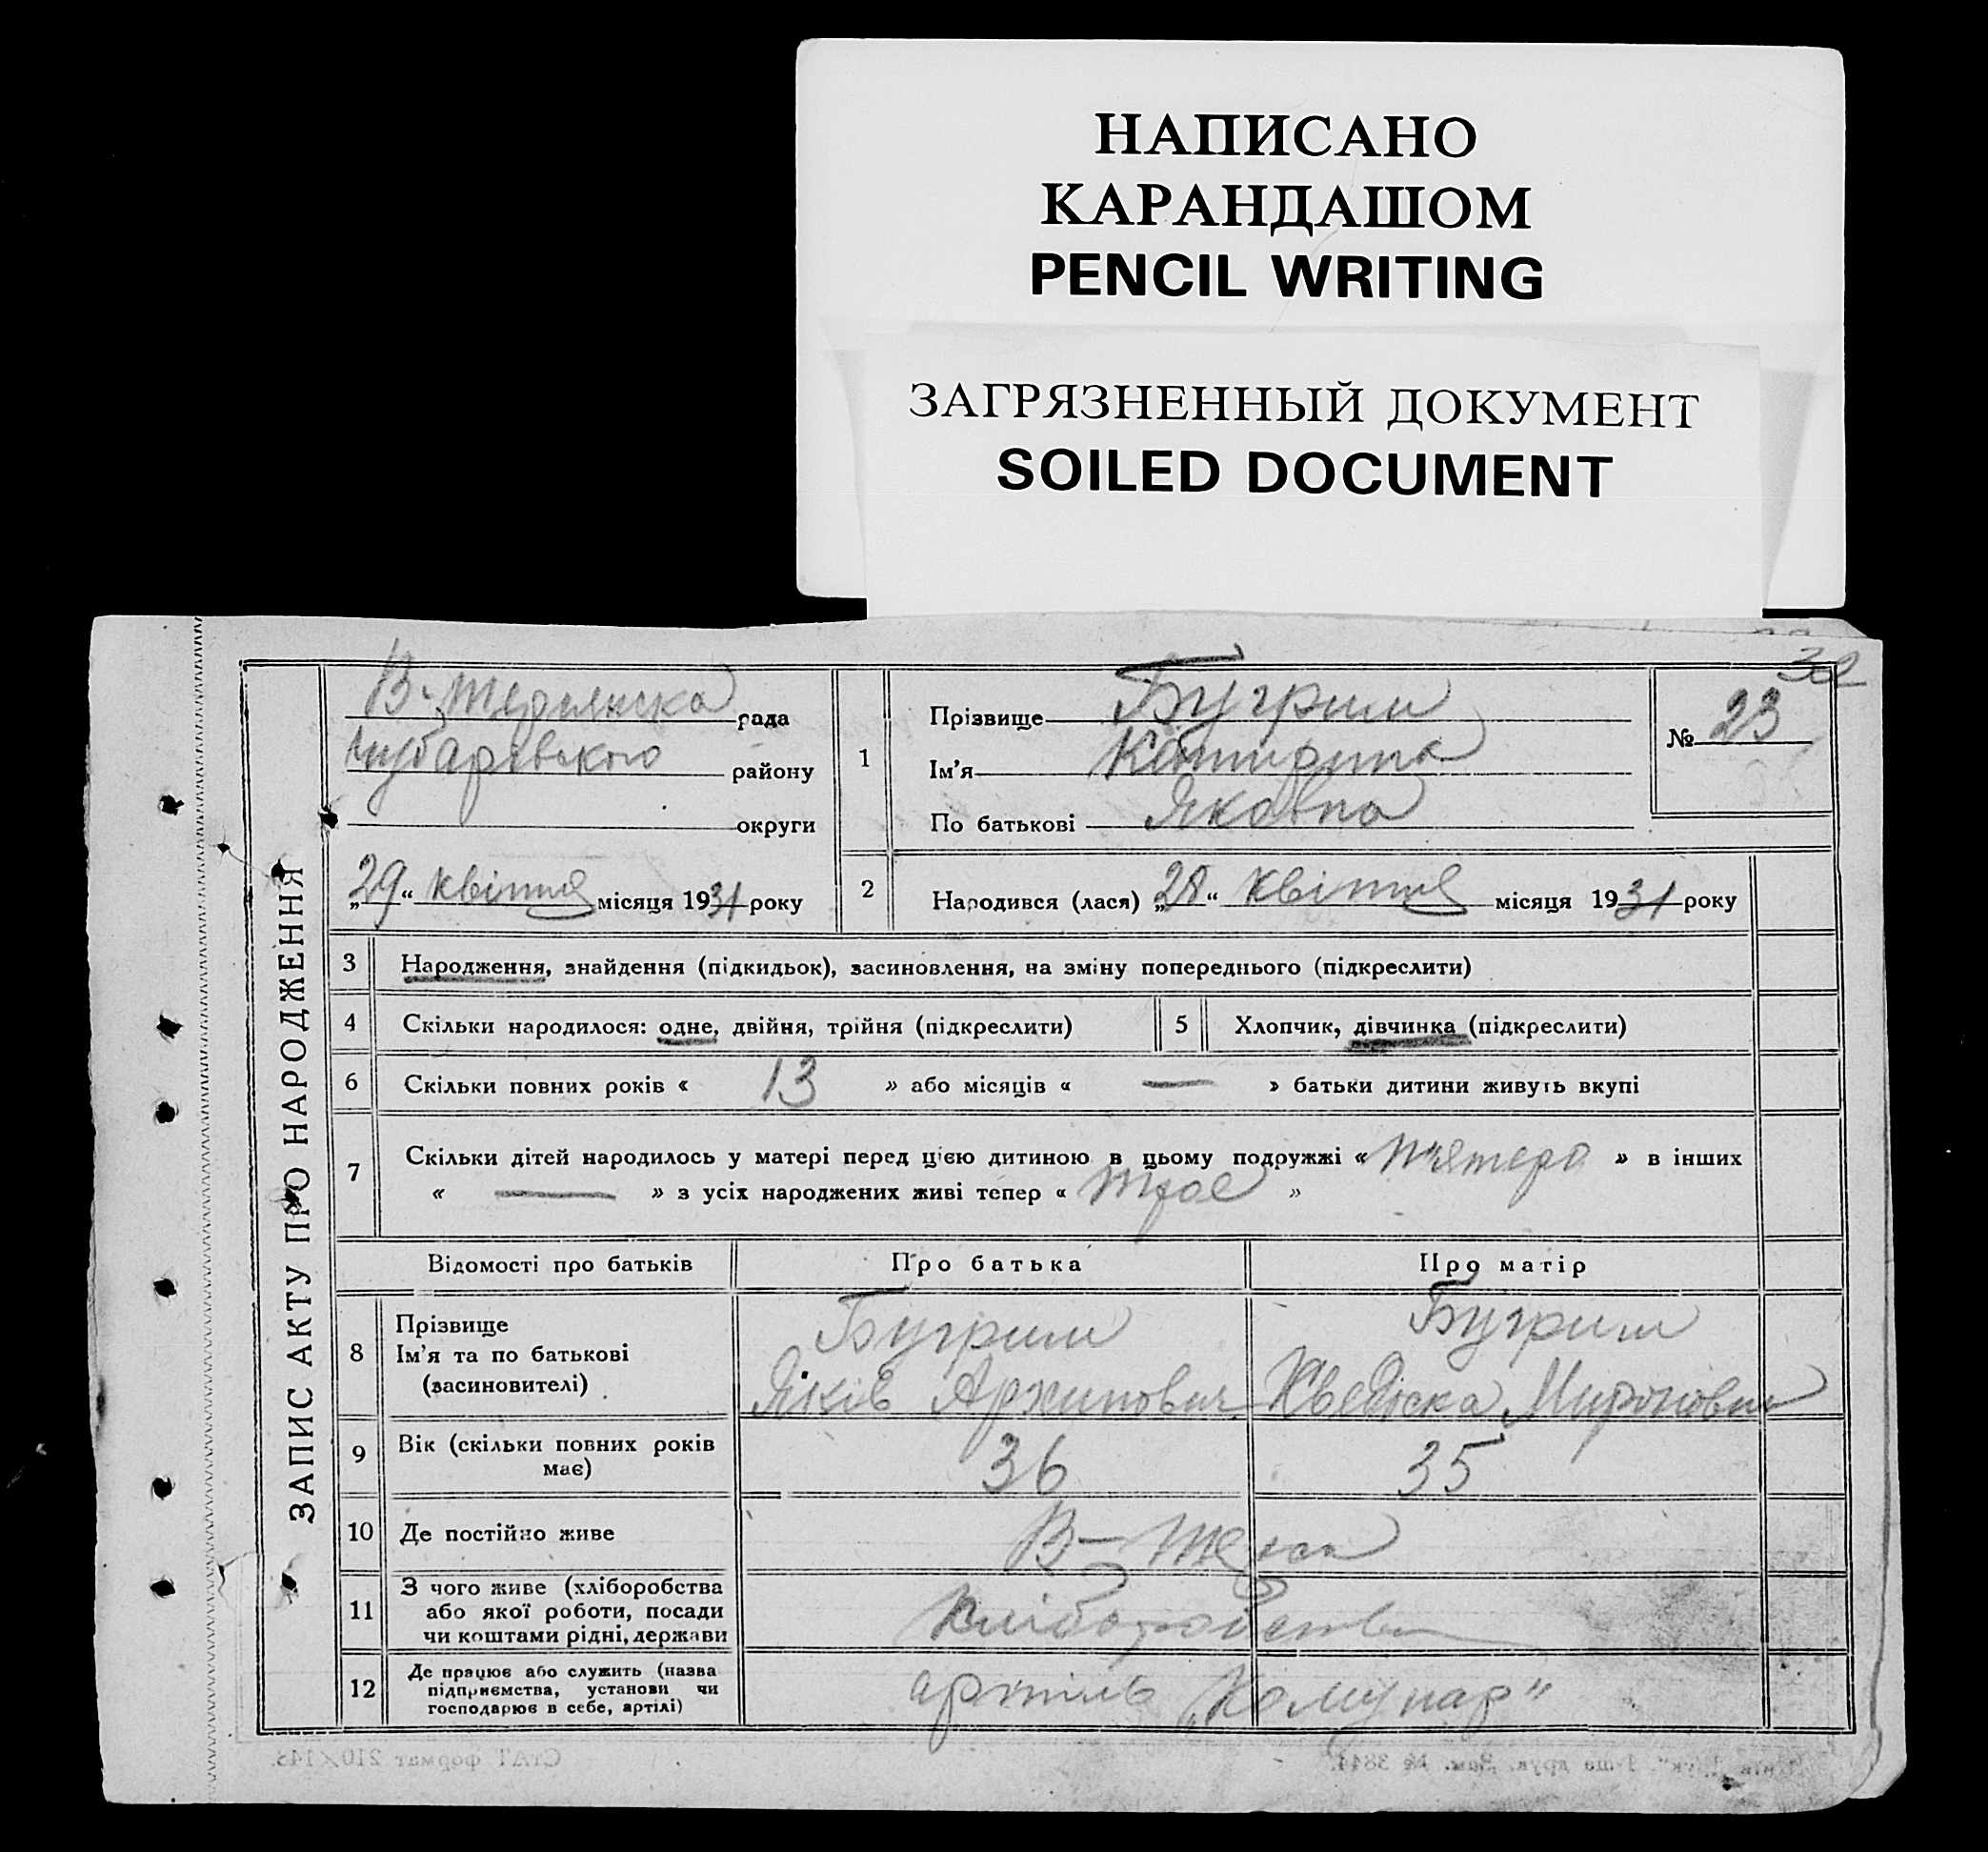 НАПИСАНО
КАРАНДАШОМ
PENCIL WRITING
ЗАГРЯЗНЕННЫЙ ДОКУМЕНТ
SOILED DOCUMENT
32
ЗАПИС АКТУ ПРО НАРОДЖЕННЯ
рада
Чубарівського району
округи
„29“ квітня місяця 1931 року
1
Прізвище Бугрим
Ім’я Катирина
По батькові Яковна
№ 23
2 Народився (лася) „28“ квітня місяця 1931 року
3 Народження, знайдення (підкидьок), засиновлення, на зміну попереднього (підкреслити)
4 Скільки народилося: одне, двійня, трійня (підкреслити)
5 Хлопчик, дівчинка (підкреслити)
6 Скільки повних років « 13 » або місяців « — » батьки дитини живуть вкупі
7 Скільки дітей народилось у матері перед цією дитиною в цьому подружжі « п'ятеро » в інших
« — » з усіх народжених живі тепер « троє »
Відомості про батьків Про батька Про матір
8 Прізвище Бугрим Бугрим
Ім’я та по батькові
(засиновителі) Яків Архипович Хведоска Мироновна
9 Вік (скільки повних років
має) 36 35
10 Де постійно живе
11 З чого живе (хліборобства
або якої роботи, посади
чи коштами рідні, держави Хліборобства
12 Де працює або служить (назва
підприємства, установи чи
господарює в себе, артілі) артіль „Комунар“
СтАТ формат 210/148.
друк. Зам. № 3844.